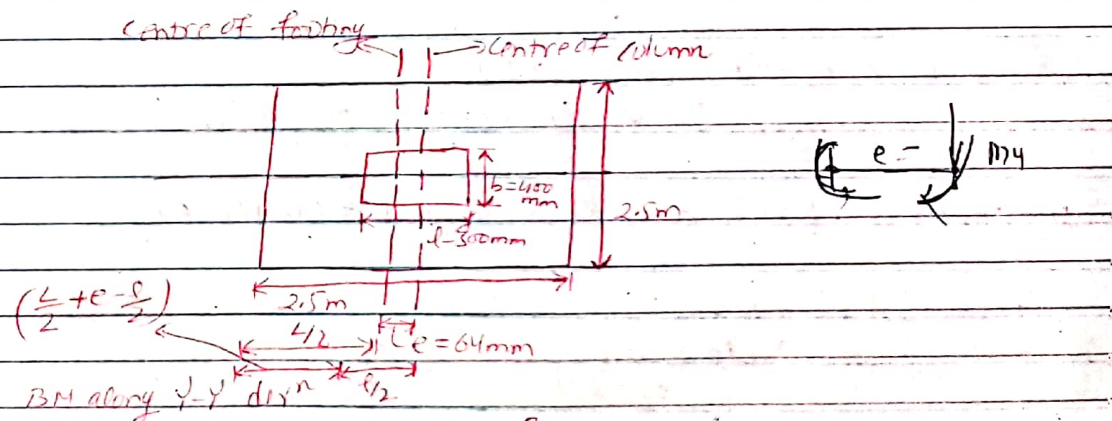 Centre of footing
Centre of column
e =
My
b=400
mm
l=500mm
2.5m
2.5m
(L/2 + e - l/2)
L/2
e = 64mm
l/2
BM along Y-Y dirⁿ